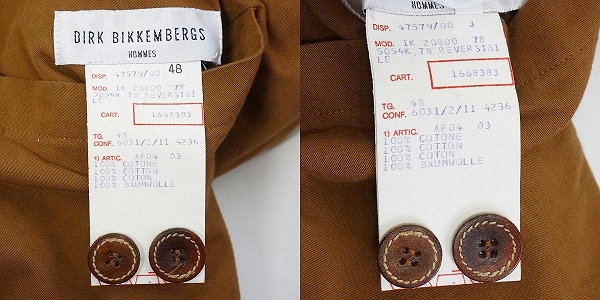 DIRK BIKKEMBERGS
HOMMES
DISP. 47579/00 48
MOD. 1K 20800 78
5054K 78 REVERSIBI
LE
CART. 1668383
TG. 48
CONF. 6031/2/11 4236
1) ARTIC. AF04 03
100% COTONE
100% COTTON
100% COTON
100% BAUMWOLLE
HOMMES
DISP. 47579/00 J
MOD. 1K 20800 78
5054K 78 REVERSIBI
LE
CART. 1668383
TG. 48
CONF. 6031/2/11 4236
1) ARTIC. AF04 03
100% COTONE
100% COTTON
100% COTON
100% BAUMWOLLE